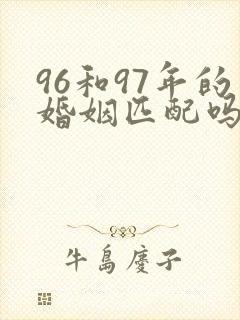 96和97年的
婚姻匹配吗
牛島慶子